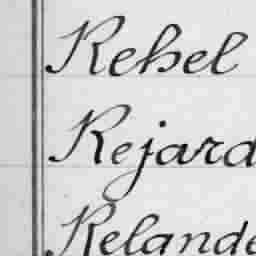 Rehel
Rejard
Relande